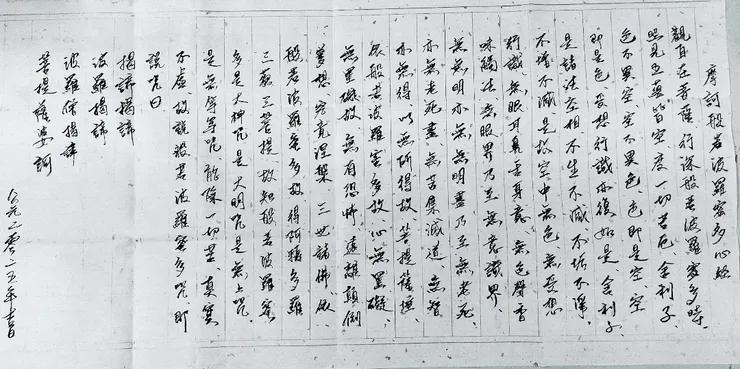 摩訶般若波羅蜜多心經
觀自在菩薩行深般若波羅蜜多時、
照見五蘊皆空度一切苦厄、舍利子、
色不異空、空不異色、色即是空、空
即是色、受想行識亦復如是、舍利子、
是諸法空相不生不滅不垢不淨、
不增不減是故空中無色無受想
行識、無眼耳鼻舌身意、無色聲香
味觸法、無眼界乃至無意識界、
無無明亦無無明盡乃至無老死、
亦無老死盡、無苦集滅道、無智
亦無得以無所得故、菩提薩埵、
依般若波羅蜜多故、心無罣礙、
無罣礙故、無有恐怖、遠離顛倒
夢想、究竟涅槃 三世諸佛、依
般若波羅蜜多故、得阿耨多羅
三藐三菩提、故知般若波羅蜜
多是大神咒是大明咒是無上咒、
是無等等咒能除一切苦、真實
不虛故說般若波羅蜜多咒即
說咒曰
揭諦揭諦
波羅揭諦
波羅僧揭諦
菩提薩婆訶
公元二零二五年